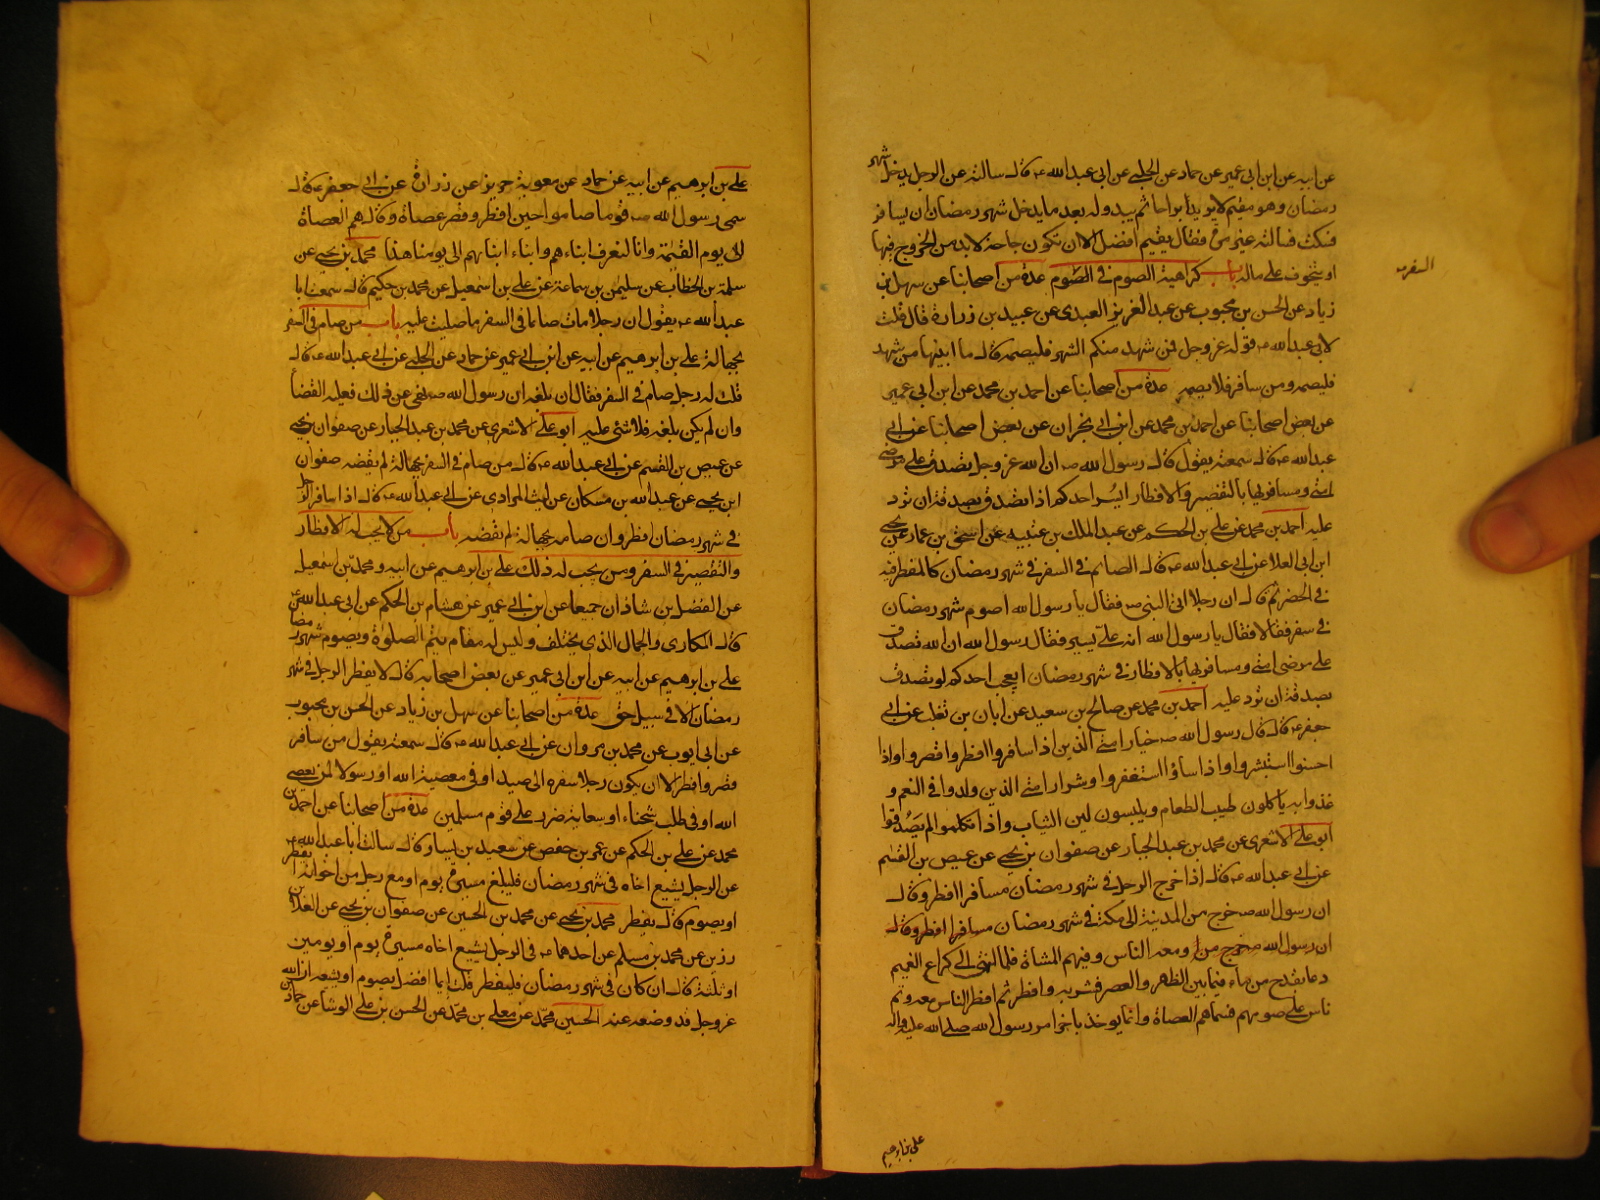 عن ابيه عن ابن ابى عمير عن حماد عن الحلبى عن ابى عبدالله ع قال سالته عن الرجل يدخل شهر
رمضان وهو مقيم لا يريد براحا ثم يبدو له بعد ما يدخل شهر رمضان ان يسافر
فسكت فسالته غير مرة فقال يقيم افضل الا ان تكون حاجة لا بد من الخروج فيها
او يتخوف على ماله باب كراهية الصوم فى الصوم عدة من اصحابنا عن سهل بن
السفر
زياد عن الحسن بن محبوب عن عبد العزيز العبدى عن عبيد بن زرارة قال قلت
لابى عبدالله ع قوله عز وجل فمن شهد منكم الشهر فليصمه قال ما ابينها من شهد
فليصمه ومن سافر فلا يصمه عدة من اصحابنا عن احمد بن محمد عن ابن ابى عمير
عن بعض اصحابنا عن احمد بن محمد عن ابن ابى نجران عن بعض اصحابنا عن ابى
عبدالله ع قال سمعته يقول قال رسول الله ص ان الله عز وجل تصدق على مرضى
امتى ومسافريها بالتقصير والافطار ايسر احدكم اذا تصدق بصدقة ان ترد
عليه احمد بن محمد عن على بن الحكم عن عبد الملك بن عتبة عن اسحق بن عمار عن يحيى
ابن ابى العلا عن ابى عبدالله ع قال الصائم فى السفر فى شهر رمضان كالمفطر فيه
فى الحضر ثم قال ان رجلا اتى النبى ص فقال يا رسول الله اصوم شهر رمضان
فى سفر فقال لا فقال يا رسول الله انه على يسير فقال رسول الله ان الله تصدق
على مرضى امتى ومسافريها بالافطار فى شهر رمضان ايعجب احدكم لو تصدق
بصدقة ان ترد عليه احمد بن محمد عن صالح بن سعيد عن ابان بن تغلب عن ابى
جعفر ع قال قال رسول الله ص خيار امتى الذين اذا سافروا افطروا وقصروا واذا
احسنوا استبشروا واذا ساؤا استغفروا وشرار امتى الذين ولدوا فى النعم و
غذوا به ياكلون طيب الطعام ويلبسون لين الثياب واذا تكلموا لم يصدقوا
ابو على الاشعرى عن محمد بن عبد الجبار عن صفوان بن يحيى عن عيص بن القسم
عن ابى عبدالله ع قال اذا خرج الرجل فى شهر رمضان مسافرا افطر وقال
ان رسول الله ص خرج من المدينة الى مكة فى شهر رمضان مسافرا افطر وقال
ان رسول الله ص خرج من ومعه الناس وفيهم المشاة فلما انتهى الى كراع الغميم
دعا بقدح من ماء فيما بين الظهر والعصر فشربه وافطر ثم افطر الناس معه وتم
ناس على صومهم فسماهم العصاة وانما يوخذ باخر امر رسول الله صلى الله عليه واله
على بن ابرهيم
على بن ابرهيم عن ابيه عن حماد عن معوية حريز عن زرارة عن ابى جعفر ع قال
سمى رسول الله ص قوما صاموا حين افطر وقصر عصاة وقال هم العصاة
الى يوم القيمة وانا لنعرف ابناءهم وابناء ابنائهم الى يومنا هذا محمد بن يحيى عن
سلمة بن الخطاب عن سليمن بن سماعة عن على بن اسمعيل عن محمد بن حكيم قال سمعت ابا
عبدالله ع يقول ان رجلا مات صائما فى السفر ما صليت عليه باب من صام فى السفر
بجهالة على بن ابرهيم عن ابيه عن ابن ابى عمير عن حماد عن الحلبى عن ابى عبدالله ع قال
قلت له رجل صام فى السفر فقال ان بلغه ان رسول الله ص نهى عن ذلك فعليه القضا
وان لم يكن بلغه فلا شئ عليه ابو على الاشعرى عن محمد بن عبد الجبار عن صفوان بن يحيى
عن عيص بن القسم عن ابى عبدالله ع قال من صام فى السفر بجهالة لم يقضه صفوان
ابن يحيى عن عبدالله بن مسكان عن ليث المرادى عن ابى عبدالله ع قال اذا سافر الرجل
فى شهر رمضان افطر وان صامه بجهالة لم يقضه باب من لا يجب له الافطار
والتقصير فى السفر ومن يجب له ذلك على بن ابرهيم عن ابيه ومحمد بن اسمعيل
عن الفضل بن شاذان جميعا عن ابن ابى عمير عن هشام بن الحكم عن ابى عبدالله ع
قال المكارى والجمال الذى يختلف وليس له مقام يتم الصلوة ويصوم شهر رمضان
على بن ابرهيم عن ابيه عن ابن ابى عمير عن بعض اصحابه قال لا يفطر الرجل فى شهر
رمضان الا فى سبيل حق عدة من اصحابنا عن سهل بن زياد عن الحسن بن محبوب
عن ابى ايوب عن محمد بن مروان عن ابى عبدالله ع قال سمعته يقول من سافر
قصر وافطر الا ان يكون رجلا سفره الى صيد او فى معصية الله او رسولا لمن يعصى
الله او فى طلب شحناء او سعاية ضرر على قوم مسلمين عدة من اصحابنا عن احمد بن
محمد عن على بن الحكم عن عمر بن حفص عن سعيد بن يسار قال سالت ابا عبدالله ع
عن الرجل يشيع اخاه فى شهر رمضان فليبلغ مسيرة يوم او مع رجل من اخوانه ايفطر
او يصوم قال يفطر محمد بن يحيى عن محمد بن الحسين عن صفوان بن يحيى عن العلا بن
رزين عن محمد بن مسلم عن احدهما ع فى الرجل يشيع اخاه مسيرة يوم او يومين
او ثلثة قال ان كان فى شهر رمضان فليفطر قلت ايما افضل يصوم او يشيعه ان الله
عز وجل قد وضعه عنه الحسين بن محمد عن معلى بن محمد عن الحسن بن على الوشا عن حماد بن